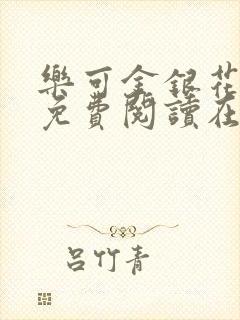 樂可金銀花
免費閱讀在
呂竹青